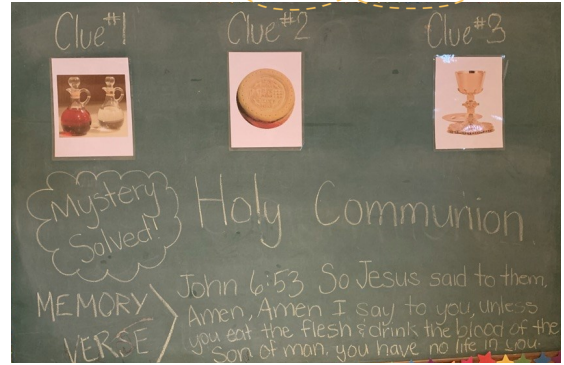 Clue #1 Clue #2 Clue #3
Mystery
Solved!
Holy Communion
MEMORY
VERSE
John 6:53 So Jesus said to them,
Amen, Amen I say to you, unless
you eat the flesh & drink the blood of the
Son of man. you have no life in you.